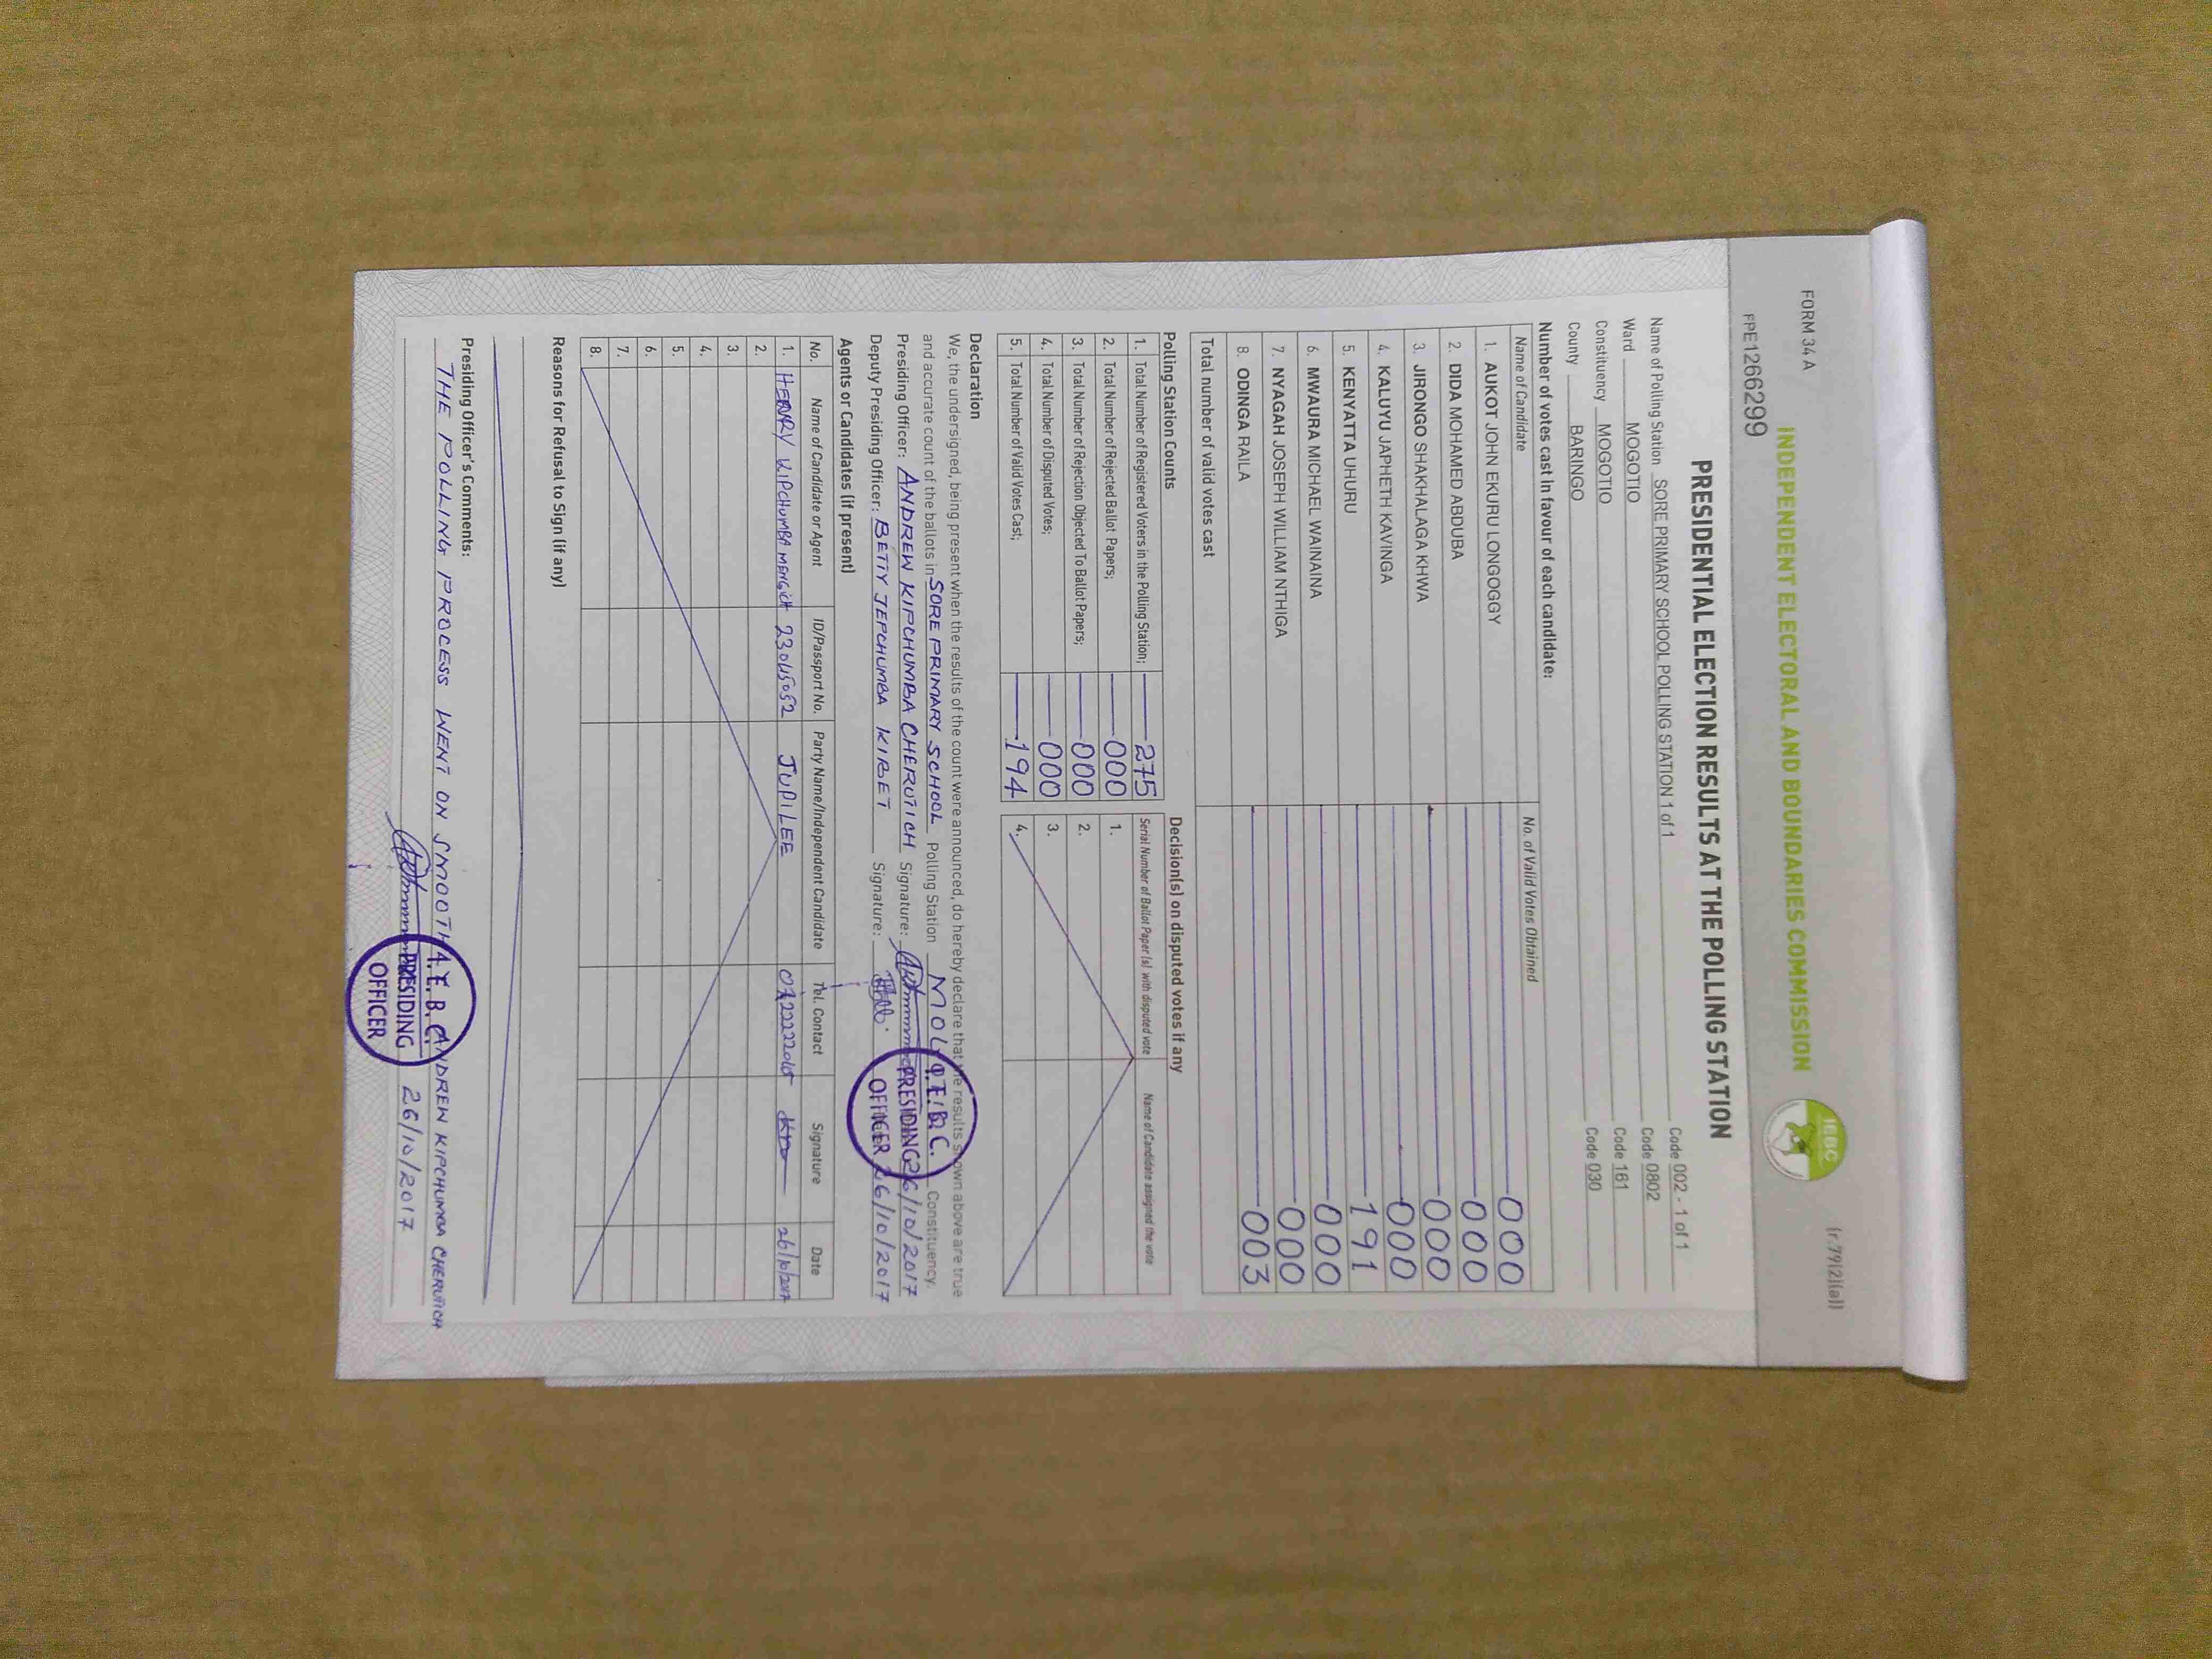 FORM 34 A
(r.79(2)(a))
INDEPENDENT ELECTORAL AND BOUNDARIES COMMISSION
IEBC
FPE1266299
PRESIDENTIAL ELECTION RESULTS AT THE POLLING STATION
Name of Polling Station SORE PRIMARY SCHOOL POLLING STATION 1 of 1 Code 002 - 1 of 1
Ward MOGOTIO Code 0802
Constituency MOGOTIO Code 161
County BARINGO Code 030
Number of votes cast in favour of each candidate:
Name of Candidate No. of Valid Votes Obtained
1. AUKOT JOHN EKURU LONGOGGY 000
2. DIDA MOHAMED ABDUBA 000
3. JIRONGO SHAKHALAGA KHWA 000
4. KALUYU JAPHETH KAVINGA 000
5. KENYATTA UHURU 191
6. MWAURA MICHAEL WAINAINA 000
7. NYAGAH JOSEPH WILLIAM NTHIGA 000
8. ODINGA RAILA 003
Total number of valid votes cast
Polling Station Counts Decision(s) on disputed votes if any
1. Total Number of Registered Voters in the Polling Station; 275 Serial Number of Ballot Paper (s) with disputed vote Name of Candidate assigned the vote
2. Total Number of Rejected Ballot Papers; 000 1.
3. Total Number of Rejection Objected To Ballot Papers; 000 2.
4. Total Number of Disputed Votes; 000 3.
5. Total Number of Valid Votes Cast; 194 4.
Declaration
We, the undersigned, being present when the results of the count were announced, do hereby declare that the results shown above are true
and accurate count of the ballots in SORE PRIMARY SCHOOL Polling Station Constituency.
Presiding Officer: ANDREW KIPCHUMBA CHERUTICH Signature: 26/10/2017
Deputy Presiding Officer: BETTY JEPCHUMBA KIBET Signature: 26/10/2017
PRESIDING
OFFICER
Agents or Candidates (if present)
No. Name of Candidate or Agent ID/Passport No. Party Name/Independent Candidate Tel. Contact Signature Date
1. HENRY KIPCHUMBA JUPILEE 26/10/2017
2.
3.
4.
5.
6.
7.
8.
Reasons for Refusal to Sign (if any)
Presiding Officer's Comments:
THE POLLING PROCESS WENT ON SMOOTH ANDREW KIPCHUMBA CHERUTICH
26/10/2017
I.E.B.C.
PRESIDING
OFFICER